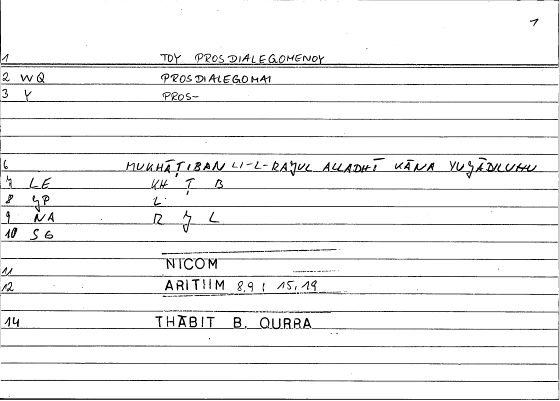 1
1 TOY PROSDIALEGOMENOY
2 WQ PROSDIALEGOMAI
3 Y PROS-
6 MUKHĀṬIBAN LI-L-RAJUL ALLADHĪ KĀNA YUJĀDILUHU
7 LE KH Ṭ B
8 JP L
9 NA R J L
10 SG
11 NICOM
12 ARITIIM 8,9 ; 15,19
14 THĀBIT B. QURRA